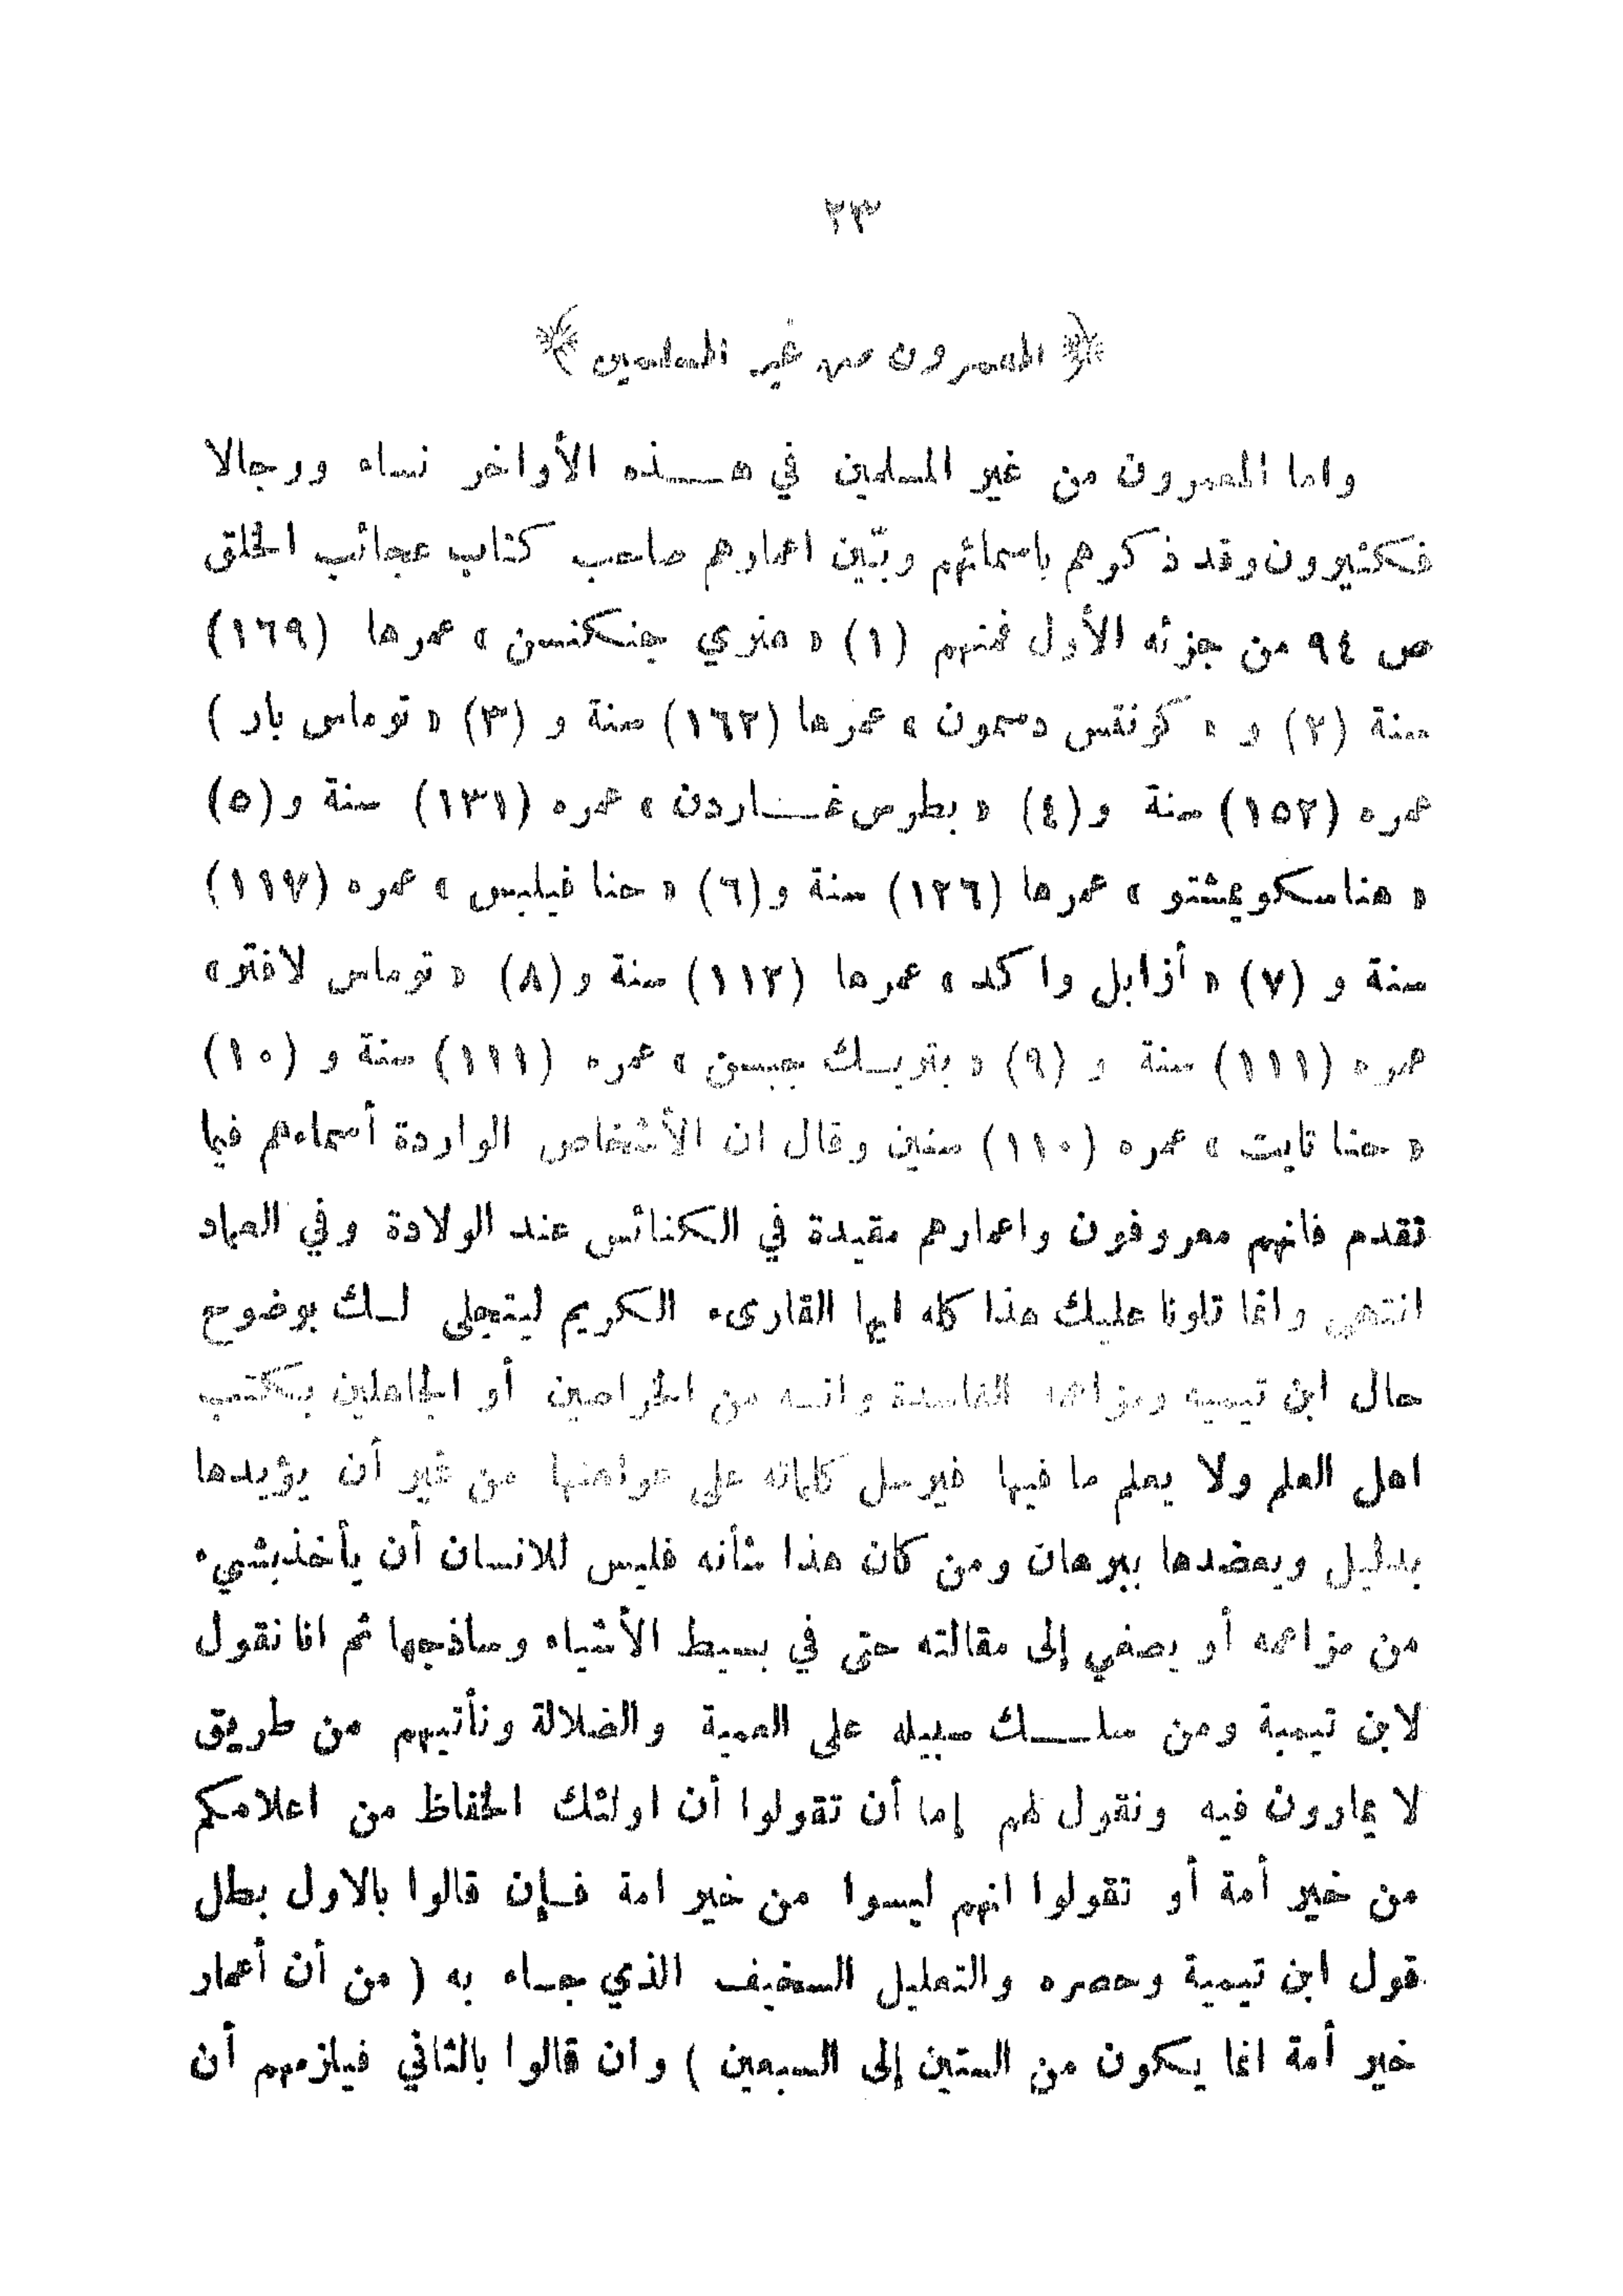 ٢٣
﴿ المعمرون من غير المسلمين ﴾
واما المعمرون من غير المسلمين في هـــذه الأواخر نساء ورجالا
فكثيرون وقد ذكرهم باسمائهم وبّين اعمارهم صاحب كتاب عجائب الخلق
ص ٩٤ من جزئه الأول فمنهم (١) « هنري جنكنسن » عمرها (١٦٩)
سنة (٢) و « كونتس دسمون » عمرها (١٦٢) سنة و (٣) « توماس بار )
عمره (١٥٢) سنة و(٤) « بطرس غـــاردن » عمره (١٣١) سنة و(٥)
« هنا سكويمشتو » عمرها (١٢٦) سنة و(٦) « حنا فيليس » عمره (١١٧)
سنة و (٧) « أزابل واكد » عمرها (١١٢) سنة و(٨) « توماس لافتر »
عمره (١١١) سنة و (٩) « بتريـك جبسن » عمره (١١١) سنة و (١٠)
« حنا تايت » عمره (١١٠) سنين وقال ان الأشخاص الواردة أسماءهم فيما
تقدم فانهم معروفون واعمارهم مقيدة في الكنائس عند الولادة وفي العماد
انتهى وانما تلونا عليك هذا كله ايها القارىء الكريم ليتجلى لـك بوضوح
حال ابن تيميه ومزاعمه الفاسدة وانـه من الخراصين أو الجاهلين بكتب
اهل العلم ولا يعلم ما فيها فيرسل كلماته على عواهنها من غير أن يؤيدها
بدليل ويعضدها ببرهان ومن كان هذا شأنه فليس للانسان أن يأخذ بشيء
من مزاعمه أو يصغي إلى مقالته حتى في بسيط الأشياء وساذجها ثم انا نقول
لابن تيمية ومن سلـــك سبيله على العمية والضلالة ونأتيهم من طريق
لا يمارون فيه ونقول لهم إما أن تقولوا أن اولئك الحفاظ من اعلامكم
من خير أمة أو تقولوا انهم ليسوا من خير امة فـإن قالوا بالاول بطل
قول ابن تيمية وحصره والتعليل السخيف الذي جـاء به ( من أن أعمار
خير أمة انما يـكون من الستين إلى السبعين ) وان قالوا بالثاني فيلزمهم أن